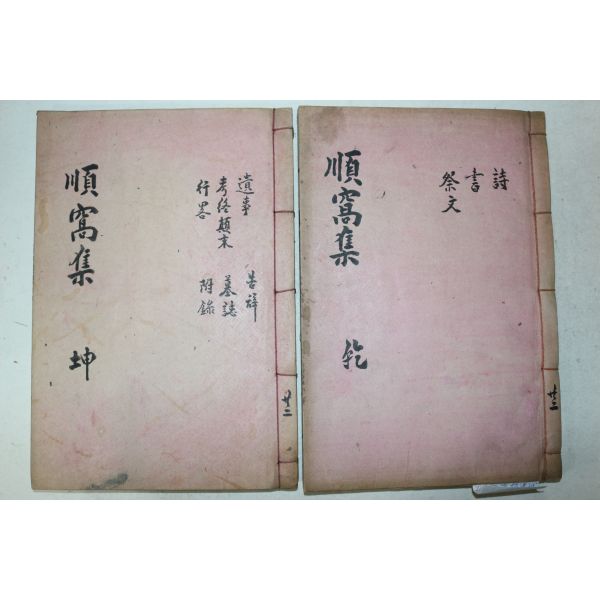 詩
書
祭文
順窩集 乾
廿二
遺事 告辞
考終顛末 墓誌
行畧 附錄
順窩集 坤
廿二